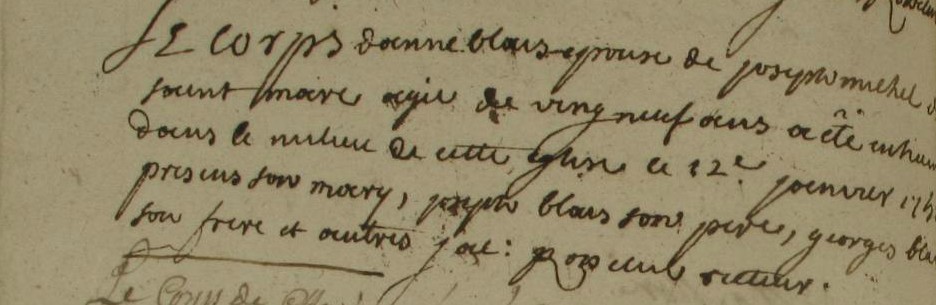 LE Corps danne blais epouse de joseph michel
saint marc agée de vingneuf ans a été inhum
dans le milieu de cette eglise ce 12e janvier 174
presens son mary, joseph blais son pere, georges blai
son frere et autres jac: recteur.
Le Corps de